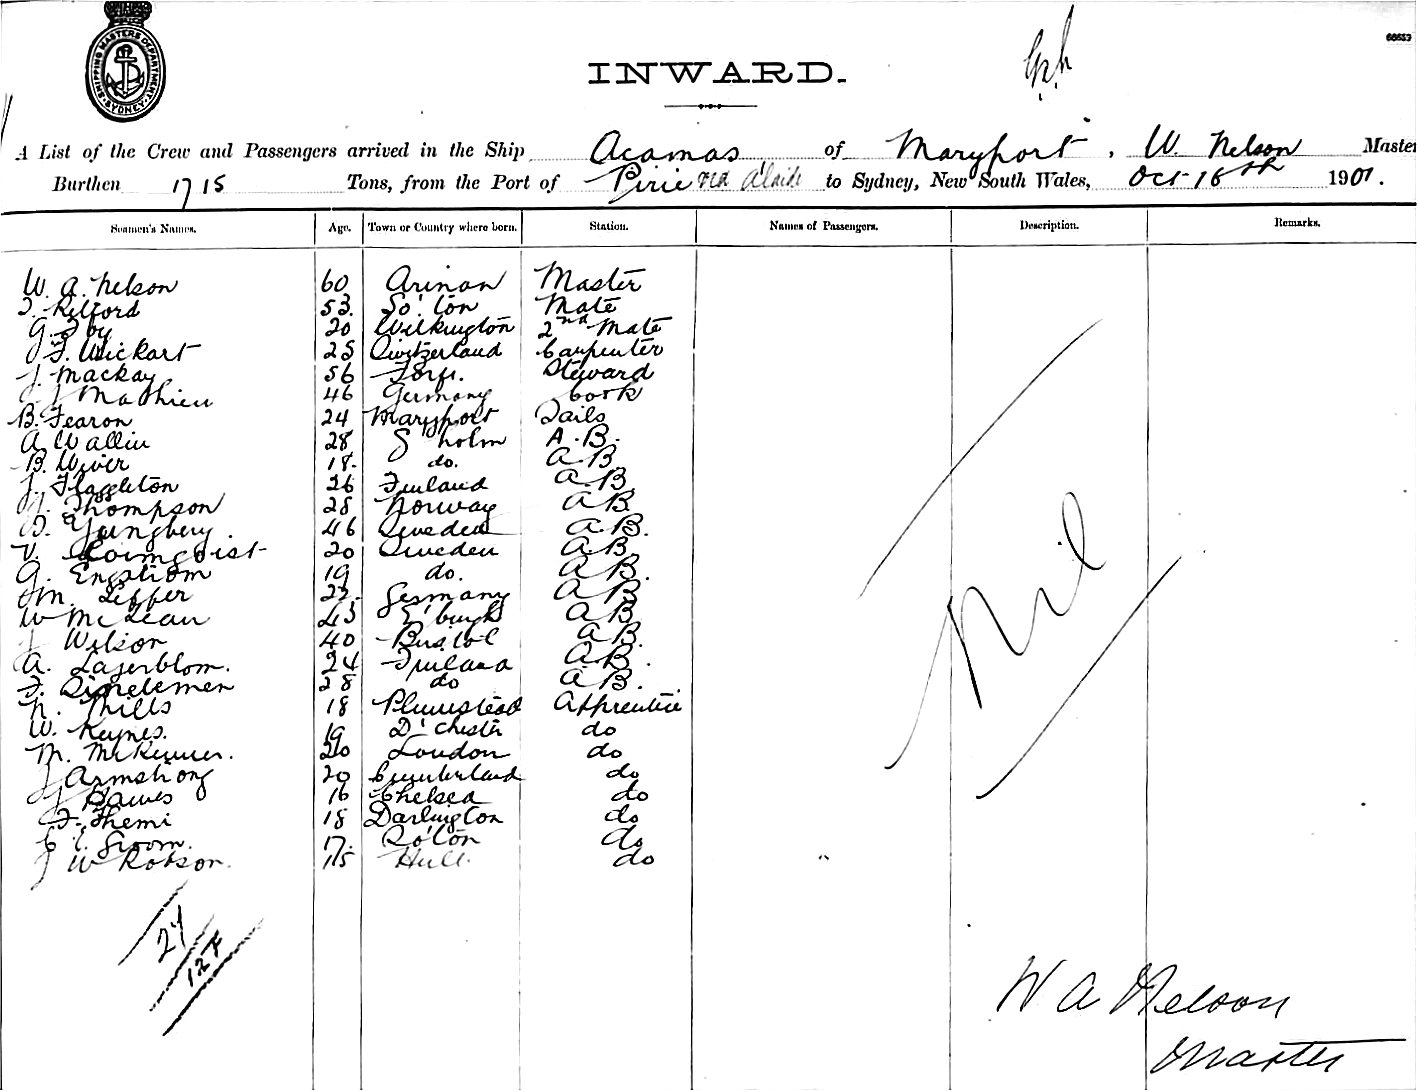 SHIPPING MASTERS DEPARTMENT SYDNEY
INWARD.
A List of the Crew and Passengers arrived in the Ship Acamas of Maryport, W. Nelson Master
Burthen 1715 Tons, from the Port of Pirie to Sydney, New South Wales, Oct 16th 1901.
Seamen's Names. Age. Town or Country where born. Station. Names of Passengers. Description. Remarks.
W. A. Nelson 60 Master
53. So'ton Mate
G. 20 2nd Mate
F. Wickart 25 Switzerland Carpenter
J. Mackay 56 Steward
J Mathieu 46 Germany Cook
B. Fearon 24 Maryport Sails
A Wallin 28 S holm A.B.
B. Wiver 18. do. A.B.
J. 26 Finland A.B.
Thompson 28 Norway A.B.
Youngberg 46 Sweden A.B.
V. 20 Sweden A.B.
G. Engström 19 do. A.B.
M. Leffer Germany A.B.
W McLean 43 E'burgh A.B.
J Wilson 40 Bristol A.B.
A. Lagerblom. 24 Finland A.B.
F. 28 do A.B.
N. Mills 18 Plumstead Apprentice
W. Keynes. 19 D'chester do
M. 20 London do
J Armstrong 20 Cumberland do
J Hawes 16 Chelsea do
F. Themi 18 Darlington do
C E. Groom. 17. So'ton do
J W Robson. 15 Hull. do
Nil
27
W A Nelson
Master